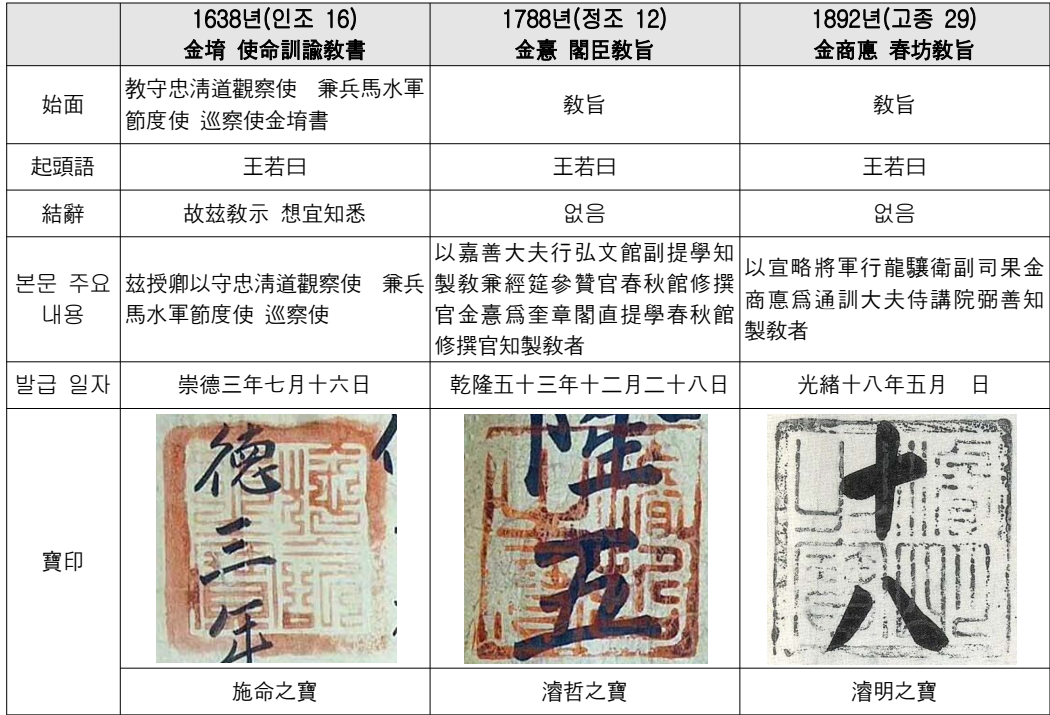 1638년(인조 16)
金堉 使命訓諭敎書
1788년(정조 12)
金憙 閣臣敎旨
1892년(고종 29)
金商悳 春坊敎旨
始面
教守忠淸道觀察使 兼兵馬水軍
節度使 巡察使金堉書
敎旨
敎旨
起頭語
王若曰
王若曰
王若曰
結辭
故玆敎示 想宜知悉
없음
없음
본문 주요
내용
玆授卿以守忠淸道觀察使 兼兵
馬水軍節度使 巡察使
以嘉善大夫行弘文館副提學知
製敎兼經筵參贊官春秋館修撰
官金憙爲奎章閣直提學春秋館
修撰官知製敎者
以宣略將軍行龍驤衛副司果金
商悳爲通訓大夫侍講院弼善知
製敎者
발급 일자
崇德三年七月十六日
乾隆五十三年十二月二十八日
光緖十八年五月 日
寶印
德三年
隆五
十八
施命之寶
濬哲之寶
濬明之寶